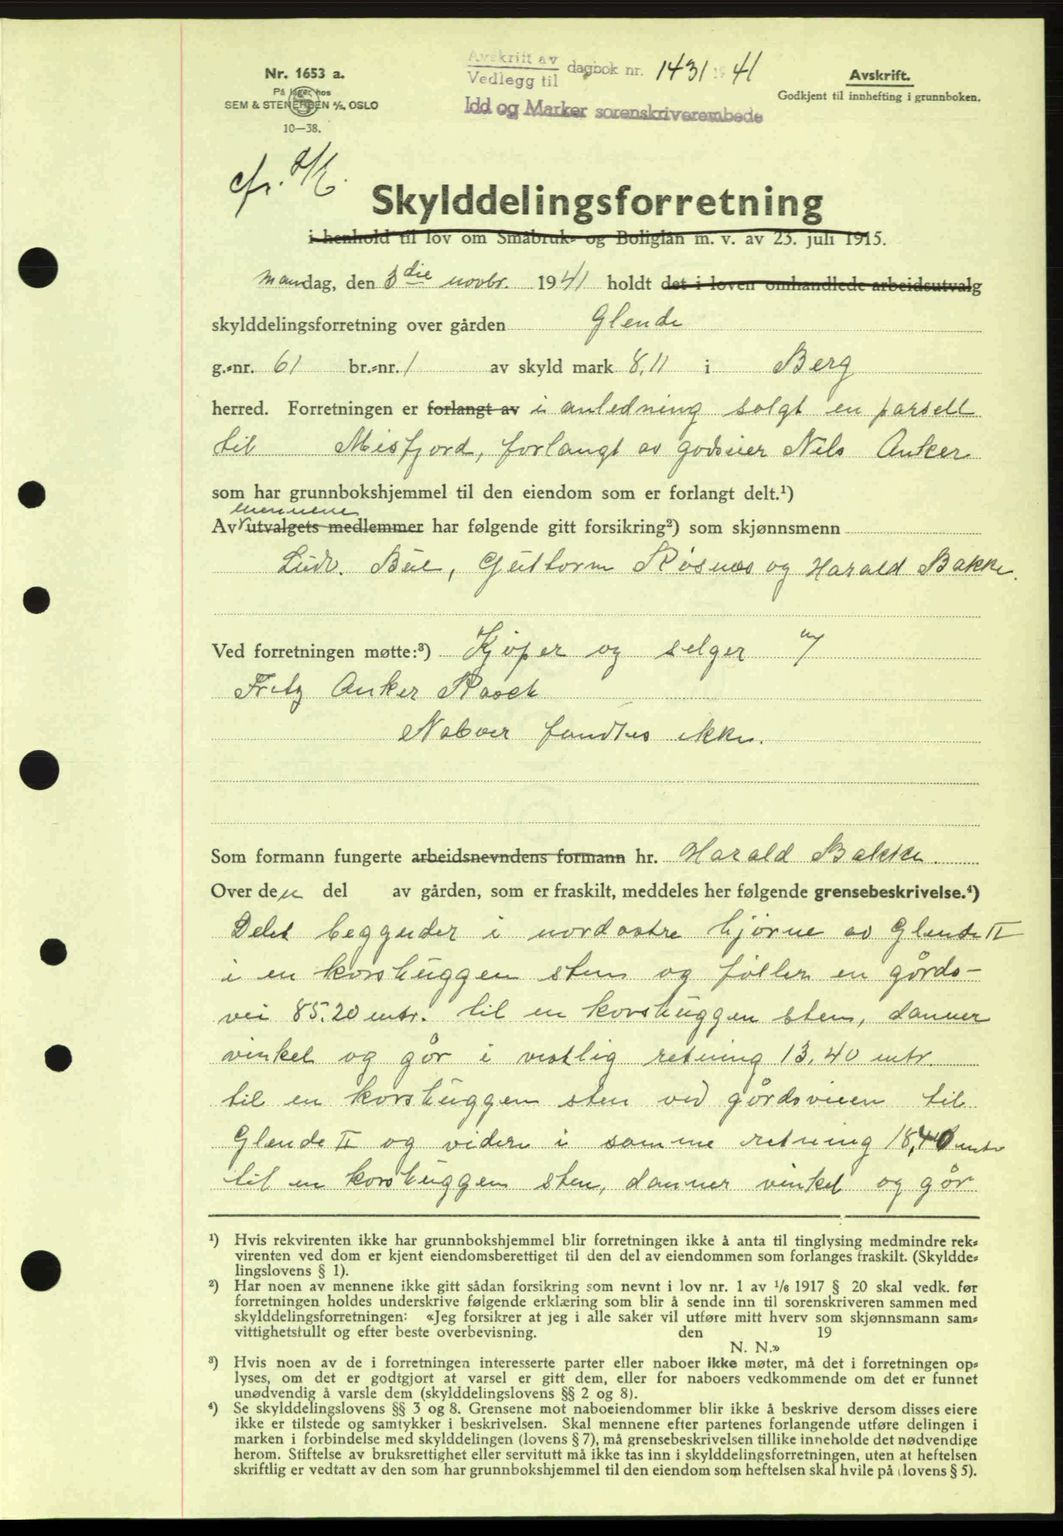 Nr. 1653 a.
På lager hos
SEM & STENERSEN A/S, OSLO
10—38.
Avskrift av
Vedlegg til dagbok nr. 1431 1941
Idd og Marker sorenskriverembede
Avskrift.
Godkjent til innhefting i grunnboken.
cfr.
Skylddelingsforretning
i henhold til lov om Småbruk- og Boliglån m. v. av 23. juli 1915.
mandag, den 3die novbr. 1941 holdt det i loven omhandlede arbeidsutvalg
skylddelingsforretning over gården Glende
g.-nr. 61 br.-nr. 1 av skyld mark 8,11 i Berg
herred. Forretningen er forlangt av i anledning solgt en parsell
til Misfjord, forlangt av godseier Nils Anker
som har grunnbokshjemmel til den eiendom som er forlangt delt.¹)
mennene
Av utvalgets medlemmer har følgende gitt forsikring²) som skjønnsmenn
Ludv. Bue, Guttorm Røsnæs og Harald Bakke.
Ved forretningen møtte:³) Kjøper og selger v/
Fritz Anker Rasch
Naboer fandtes ikke.
Som formann fungerte arbeidsnevndens formann hr. Harald Bakke.
Over den del av gården, som er fraskilt, meddeles her følgende grensebeskrivelse.⁴)
Delet begynder i nordøstre hjørne av Glende II
i en korshuggen sten og følger en gårds-
vei 85.20 mtr. til en korshuggen sten, danner
vinkel og går i vestlig retning 13,40 mtr.
til en korshuggen sten ved gårdsveien til
Glende II og videre i samme retning 18,40 mtr
til en korshuggen sten, danner vinkel og går
¹) Hvis rekvirenten ikke har grunnbokshjemmel blir forretningen ikke å anta til tinglysing medmindre rek-
virenten ved dom er kjent eiendomsberettiget til den del av eiendommen som forlanges fraskilt. (Skyldde-
lingslovens § 1).
²) Har noen av mennene ikke gitt sådan forsikring som nevnt i lov nr. 1 av 1/6 1917 § 20 skal vedk. før
forretningen holdes underskrive følgende erklæring som blir å sende inn til sorenskriveren sammen med
skylddelingsforretningen: «Jeg forsikrer at jeg i alle saker vil utføre mitt hverv som skjønnsmann sam-
vittighetsfullt og efter beste overbevisning. den 19
N. N.»
³) Hvis noen av de i forretningen interesserte parter eller naboer ikke møter, må det i forretningen op-
lyses, om det er godtgjort at varsel er gitt dem, eller for naboers vedkommende om det er funnet
unødvendig å varsle dem (skylddelingslovens §§ 2 og 8).
⁴) Se skylddelingslovens §§ 3 og 8. Grensene mot naboeiendommer blir ikke å beskrive dersom disses eiere
ikke er tilstede og samtykker i beskrivelsen. Skal mennene efter partenes forlangende utføre delingen i
marken i forbindelse med skylddelingen (lovens § 7), må grensebeskrivelsen tillike inneholde det nødvendige
herom. Stiftelse av bruksrettighet eller servitutt må ikke tas inn i skylddelingsforretningen, uten at heftelsen
skriftlig er vedtatt av den som har grunnbokshjemmel til den eiendom som heftelsen skal hvile på (lovens § 5).